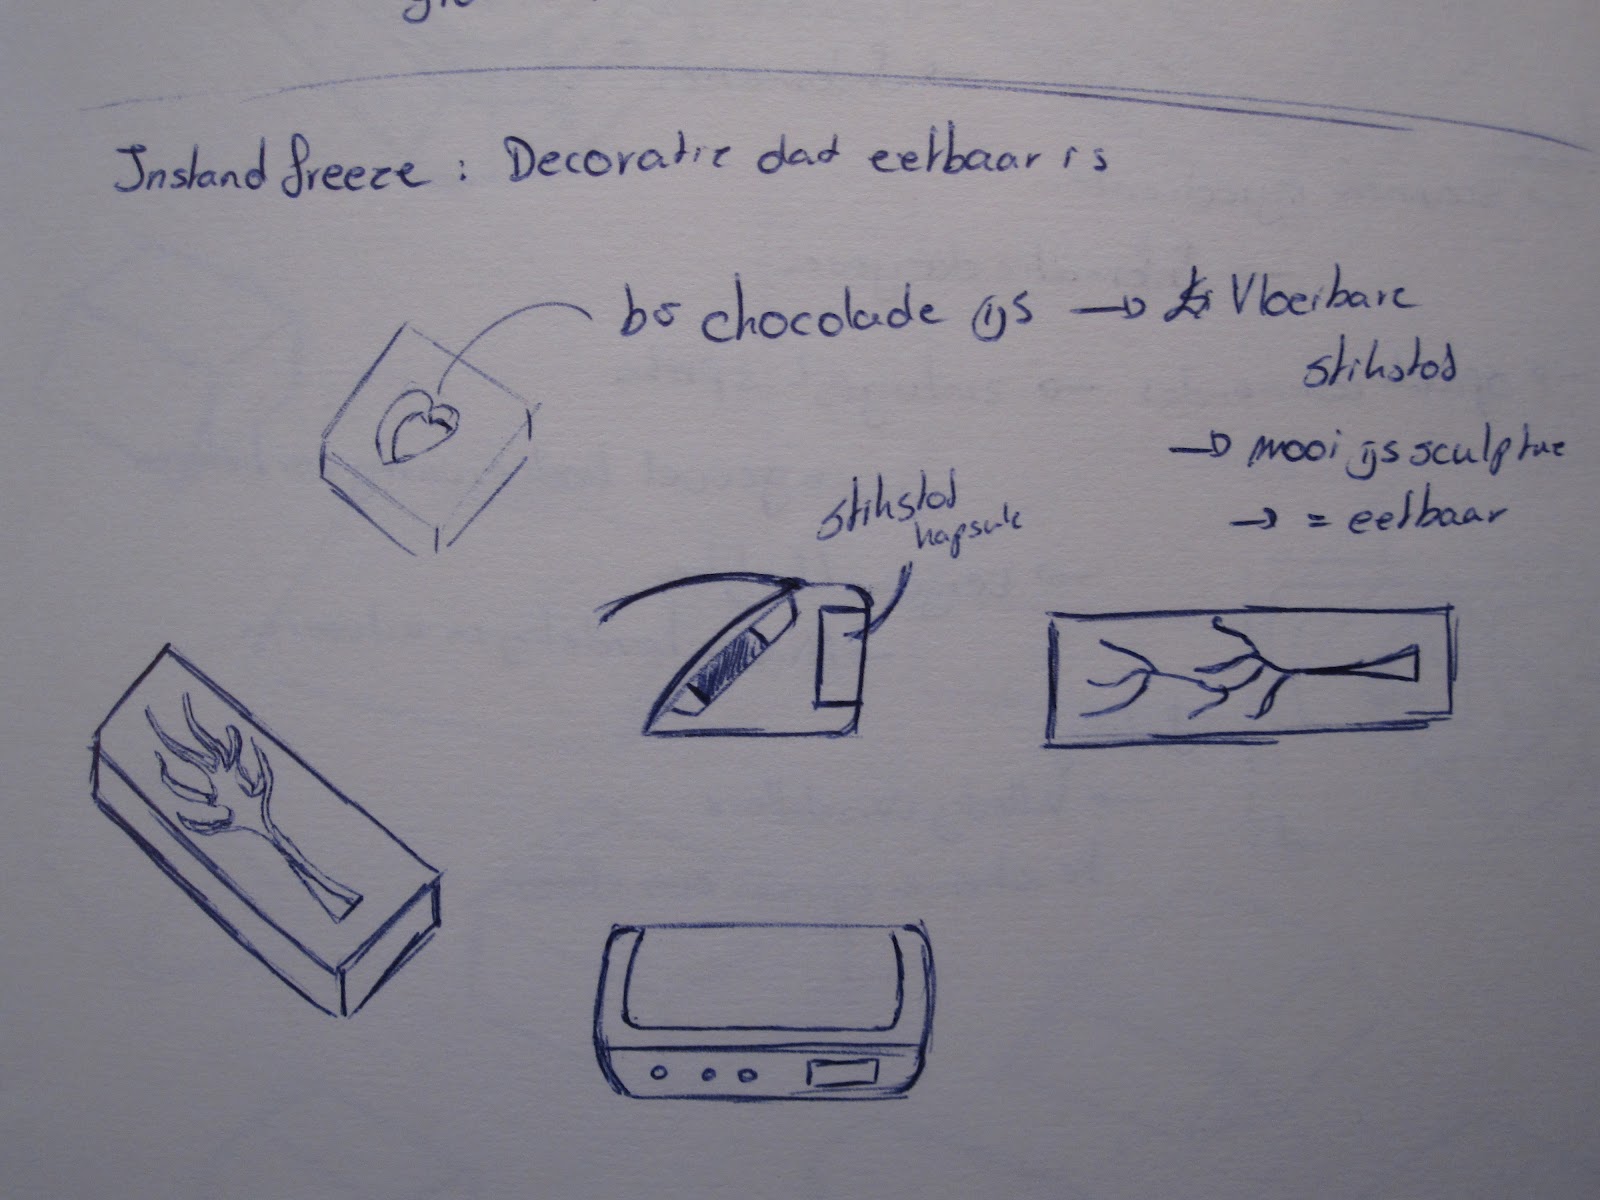 Instand freeze : Decoratie dat eetbaar is
bv chocolade ijs → Vloeibare
stikstof
→ mooi ijssculptue
→ = eetbaar
stikstof
kapsule